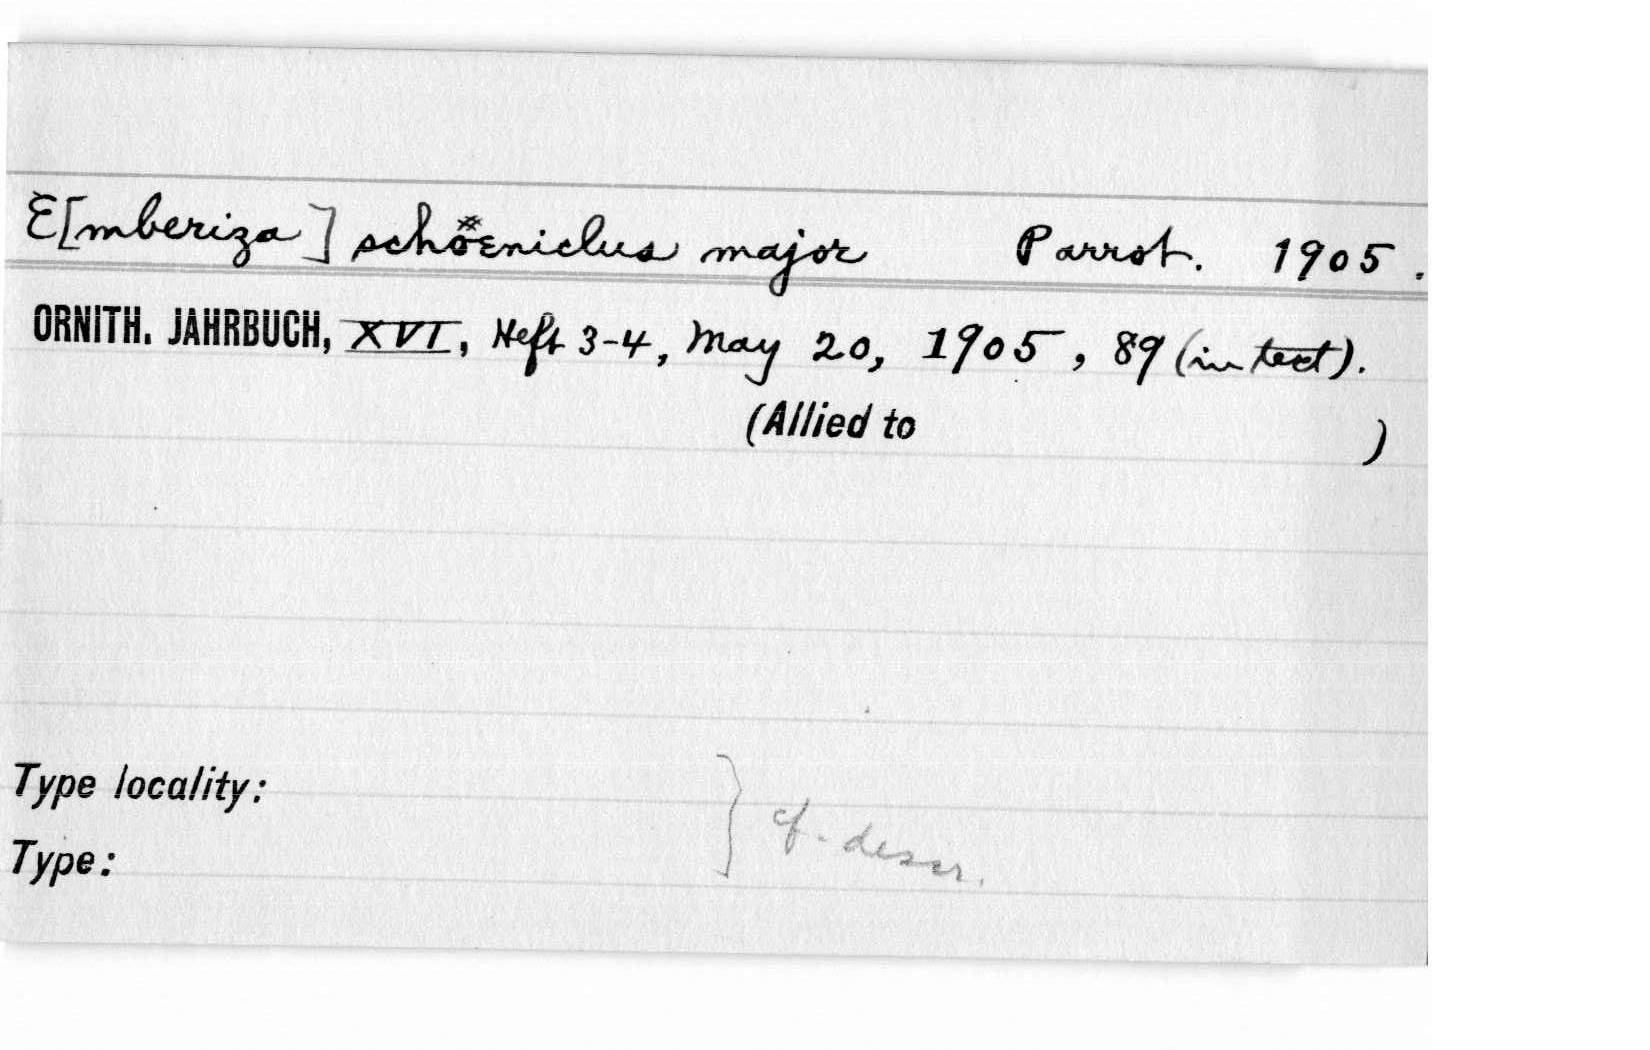 E[mberiza] schoeniclus major Parrot. 1905.
ORNITH. JAHRBUCH, XVI, Heft 3-4, May 20, 1905, 89 (in text).
(Allied to )
Type locality:
Type:
} cf. descr.